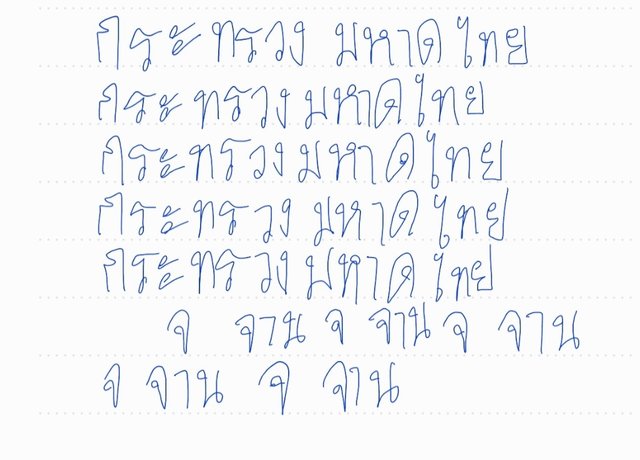 กระ ทรวง มหาด ไทย
กระ ทรวง มหาด ไทย
กระ ทรวง มหาด ไทย
กระ ทรวง มหาด ไทย
กระ ทรวง มหาด ไทย
จ จาน จ จาน จ จาน
จ จาน จ จาน